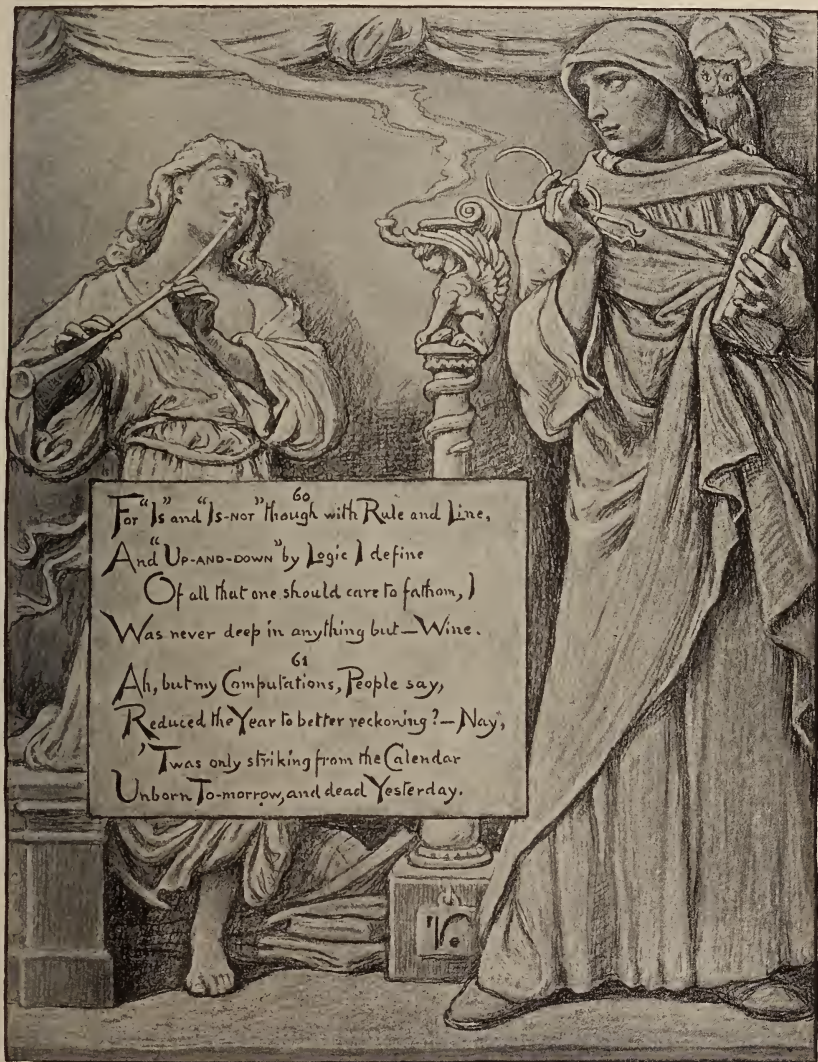 60
For "Is" and "Is-not" though with Rule and Line,
And "Up-and-down" by Logic I define
Of all that one should care to fathom, I
Was never deep in anything but—Wine.
61
Ah, but my Computations, People say,
Reduced the Year to better reckoning?—Nay,
'Twas only striking from the Calendar
Unborn To-morrow, and dead Yesterday.
V.